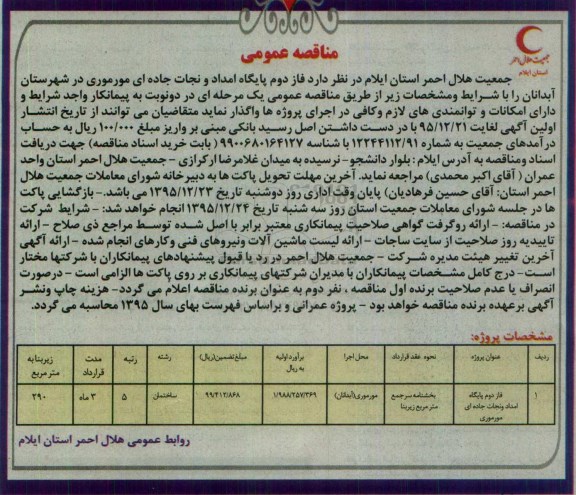 جمعیت هلال احمر
استان ایلام
مناقصه عمومی
جمعیت هلال احمر استان ایلام در نظر دارد فاز دوم پایگاه امداد و نجات جاده ای مورموری در شهرستان
آبدانان را با شرایط ومشخصات زیر از طریق مناقصه عمومی یک مرحله ای در دونوبت به پیمانکار واجد شرایط و
دارای امکانات و توانمندی های لازم وکافی در اجرای پروژه ها واگذار نماید متقاضیان می توانند از تاریخ انتشار
اولین آگهی لغایت ۹۵/۱۲/۲۱ با در دست داشتن اصل رسید بانکی مبنی بر واریز مبلغ ۱۰۰/۰۰۰ ریال به حساب
درآمدهای جمعیت به شماره ۱۲۲۴۴۱۱۲/۹۱ با شناسه ۹۹۰۰۶۸۰۱۶۴۱۲۷ ( بابت خرید اسناد مناقصه) جهت دریافت
اسناد ومناقصه به آدرس ایلام : بلوار دانشجو- نرسیده به میدان غلامرضا ارکوازی - جمعیت هلال احمر استان واحد
عمران ( آقای اکبر محمدی) مراجعه نماید. آخرین مهلت تحویل پاکت ها به دبیرخانه شورای معاملات جمعیت هلال
احمر استان: آقای حسین فرهادیان) پایان وقت اداری روز دوشنبه تاریخ ۱۳۹۵/۱۲/۲۳ می باشد.- بازگشایی پاکت
ها در جلسه شورای معاملات جمعیت استان روز سه شنبه تاریخ ۱۳۹۵/۱۲/۲۴ انجام خواهد شد: - شرایط شرکت
در مناقصه: - ارائه روگرفت گواهی صلاحیت پیمانکاری معتبر برابر با اصل شده توسط مراجع ذی صلاح - ارائه
تاییدیه روز صلاحیت از سایت ساجات - ارائه لیست ماشین آلات ونیروهای فنی وکارهای انجام شده - ارائه آگهی
آخرین تغییر هیئت مدیره شرکت - جمعیت هلال احمر در رد یا قبول پیشنهادهای پیمانکاران یا شرکتها مختار
است- درج کامل مشخصات پیمانکاران یا مدیران شرکتهای پیمانکاری بر روی پاکت ها الزامی است - درصورت
انصراف یا عدم صلاحیت برنده اول مناقصه ، نفر دوم به عنوان برنده مناقصه اعلام می گردد- هزینه چاپ ونشر
آگهی برعهده برنده مناقصه خواهد بود - پروژه عمرانی و براساس فهرست بهای سال ۱۳۹۵ محاسبه می گردد.
مشخصات پروژه:
ردیف عنوان پروژه نحوه عقد قرارداد محل اجرا برآورد اولیه به ریال مبلغ تضمین(ریال) رشته رتبه مدت قرارداد زیربنا به متر مربع
۱ فاز دوم پایگاه امداد ونجات جاده ای مورموری بخشنامه سرجمع متر مربع زیربنا مورموری(آبدانان) ۱/۹۸۸/۲۵۷/۳۶۹ ۹۹/۴۱۲/۸۶۸ ساختمان ۵ ۳ ماه ۲۹۰
روابط عمومی هلال احمر استان ایلام